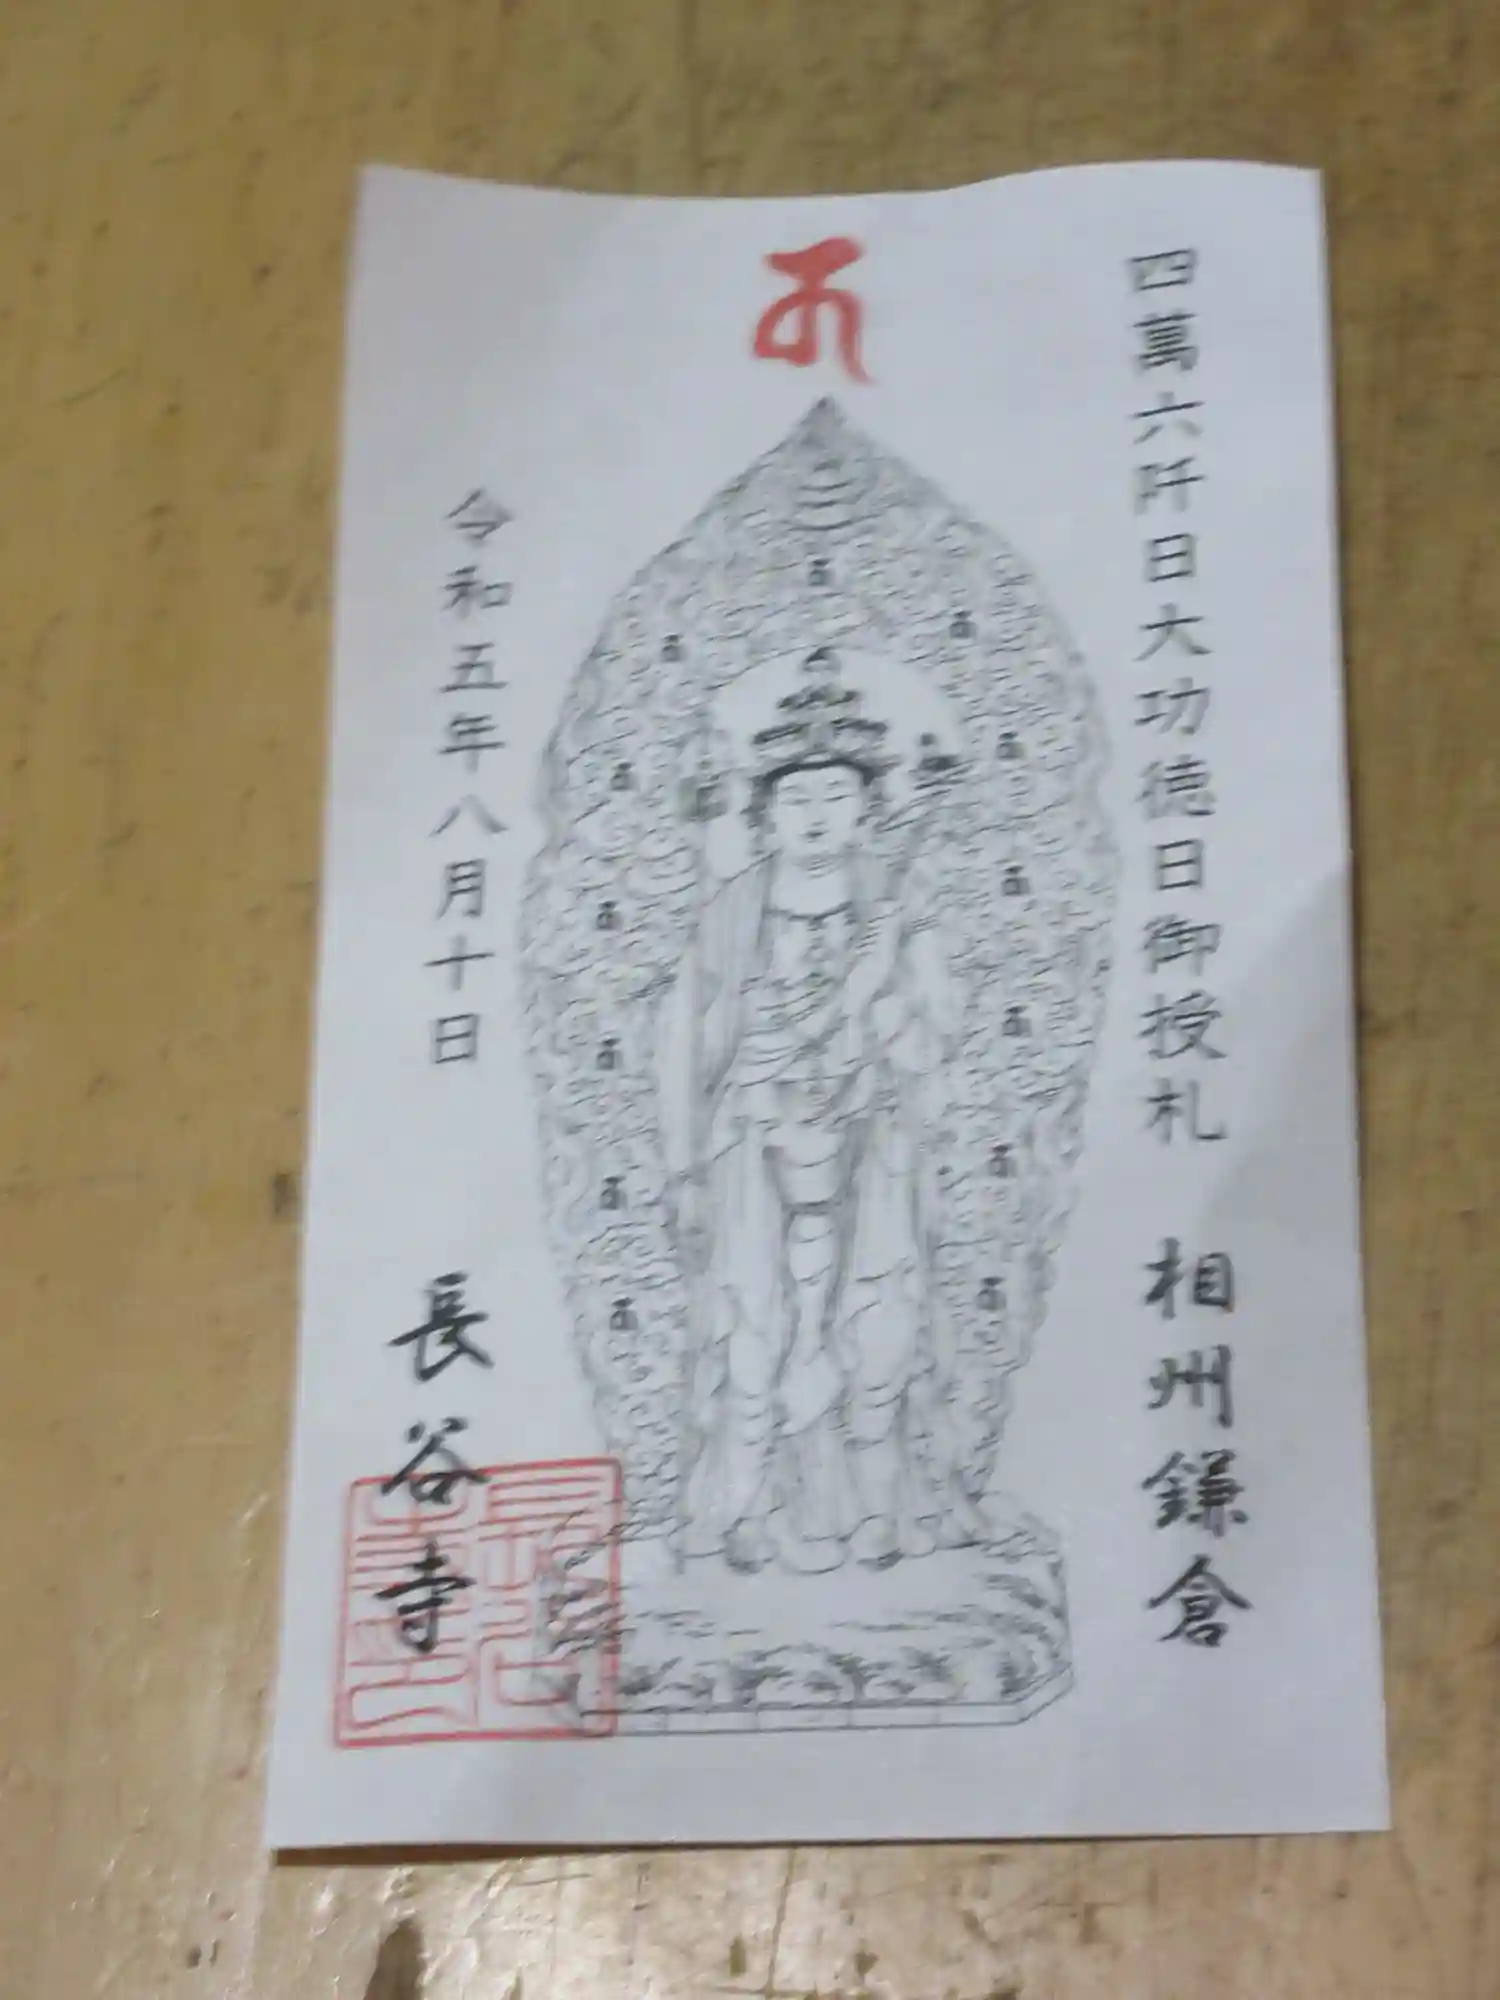 四萬六阡日大功徳日御授札 相州鎌倉
令和五年八月十日 長谷寺